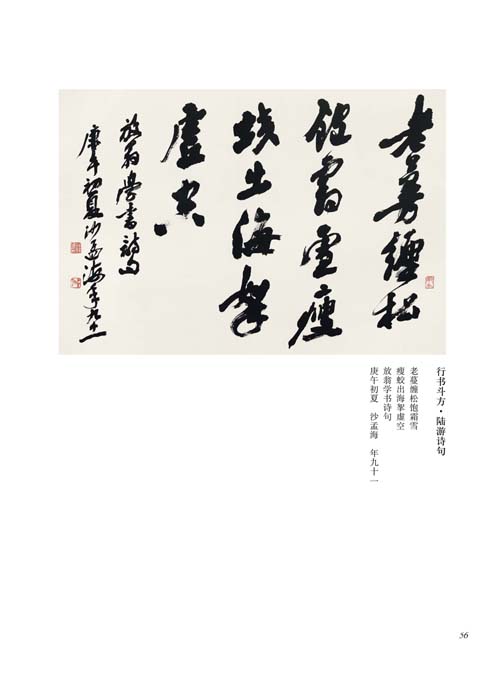 老蔓纏松
飽霜雪瘦
蛟出海拏
虛空
放翁學書詩句
庚午初夏沙孟海年九十一
行书斗方·陆游诗句
老蔓缠松饱霜雪
瘦蛟出海拏虚空
放翁学书诗句
庚午初夏 沙孟海 年九十一
56